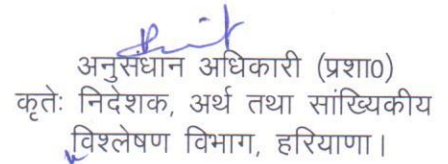 अनुसंधान अधिकारी (प्रशा0)
कृतेः निदेशक, अर्थ तथा सांख्यिकीय
विश्लेषण विभाग, हरियाणा।